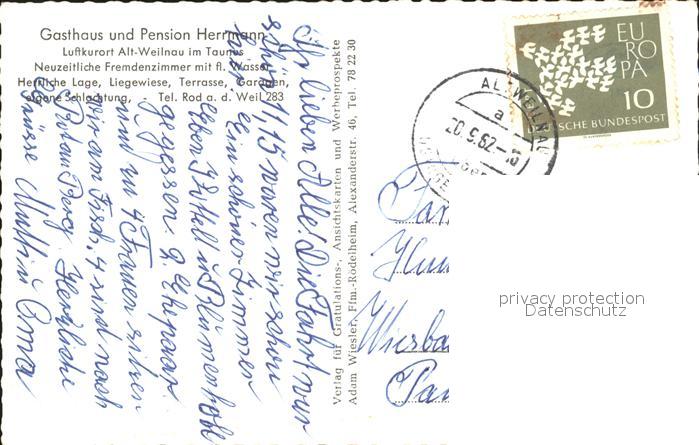 Gasthaus und Pension Herrmann
Luftkurort Alt-Weilnau im Taunus
Neuzeitliche Fremdenzimmer mit fl. Wasser
Herrliche Lage, Liegewiese, Terrasse, Garagen,
eigene Schlachtung, Tel. Rod a. d. Weil 283
Ihr lieben Alle. Die Fahrt war
schön, 11,15 waren wir schon
hier. Ein schönes Zimmer
haben
gegessen. 2 Ehepaar
und zu 4 Frauen sitzen
wir am Tisch, 4 sind nach
Herzliche
Grüsse Mutti u Oma
Verlag für Gratulations-, Ansichtskarten und Werbeprospekte
Adam Wiesler, Ffm.-Rödelheim, Alexanderstr. 46, Tel. 78 22 30
EU
RO
PA
10
DEUTSCHE BUNDESPOST
ALTWEILNAU
a
20.9.62-18
Wiesba
privacy protection
Datenschutz